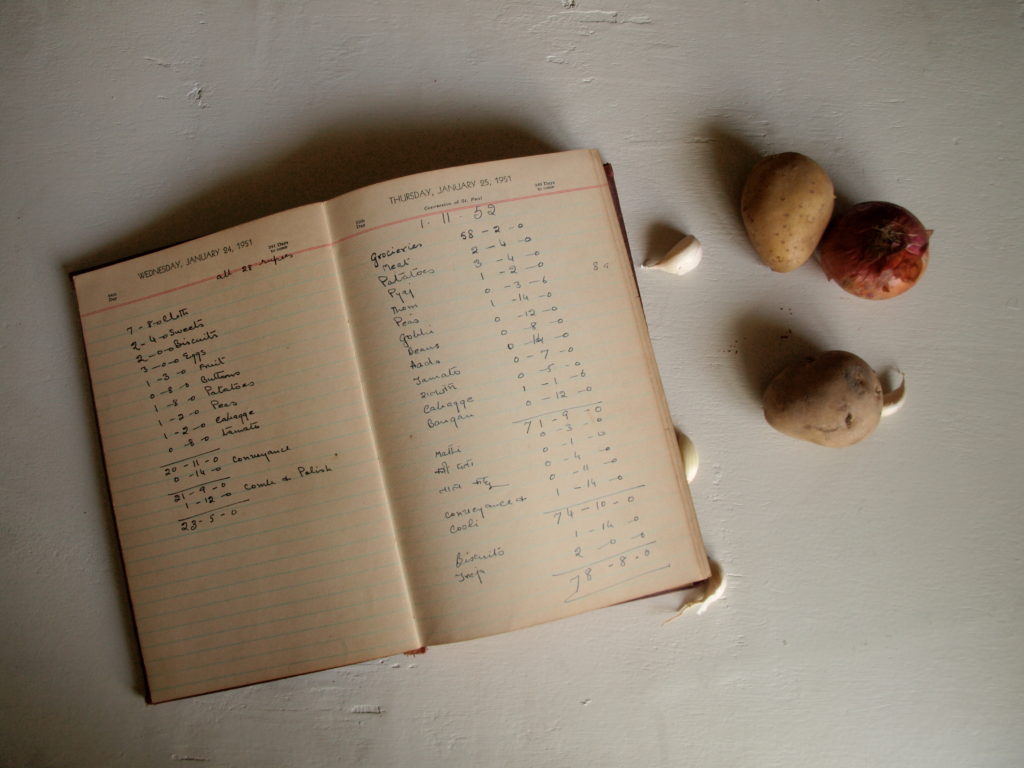 WEDNESDAY, JANUARY 24, 1951
24th Day
341 Days to come
all 28 rupees
7 - 8 - 0 Cloth
2 - 4 - 0 Sweets
2 - 0 - 0 Biscuits
3 - 0 - 0 Eggs
1 - 3 - 0 Fruit
0 - 8 - 0 Buttons
1 - 8 - 0 Patatoes
1 - 2 - 0 Peas
1 - 2 - 0 Cabagge
0 - 8 - 0 tamato
20 - 11 - 0
0 - 14 - 0 Conveyance
21 - 9 - 0
1 - 12 - 0 Comb & Polish
23 - 5 - 0
THURSDAY, JANUARY 25, 1951
25th Day
Conversion of St. Paul
340 Days to come
1 . 11 . 52
Grocieries 58 - 2 - 0
Meat 2 - 4 - 0
Patatoes 3 - 4 - 0
Pyaj 1 - 2 - 0
Thom 0 - 3 - 6
Peas 1 - 14 - 0
Gobhi 0 - 12 - 0
Beans 0 - 8 - 0
Aada 0 - 14 - 0
Tamato 0 - 7 - 0
0 - 5 - 0
Cabagge 1 - 1 - 6
Bangan 0 - 12 - 0
71 - 9 - 0
Mathi 0 - 3 - 0
0 - 1 - 0
0 - 4 - 0
Conveyance & 0 - 11 - 0
Cooli 1 - 14 - 0
74 - 10 - 0
Biscuits 1 - 14 - 0
2 - 0 - 0
78 - 8 - 0